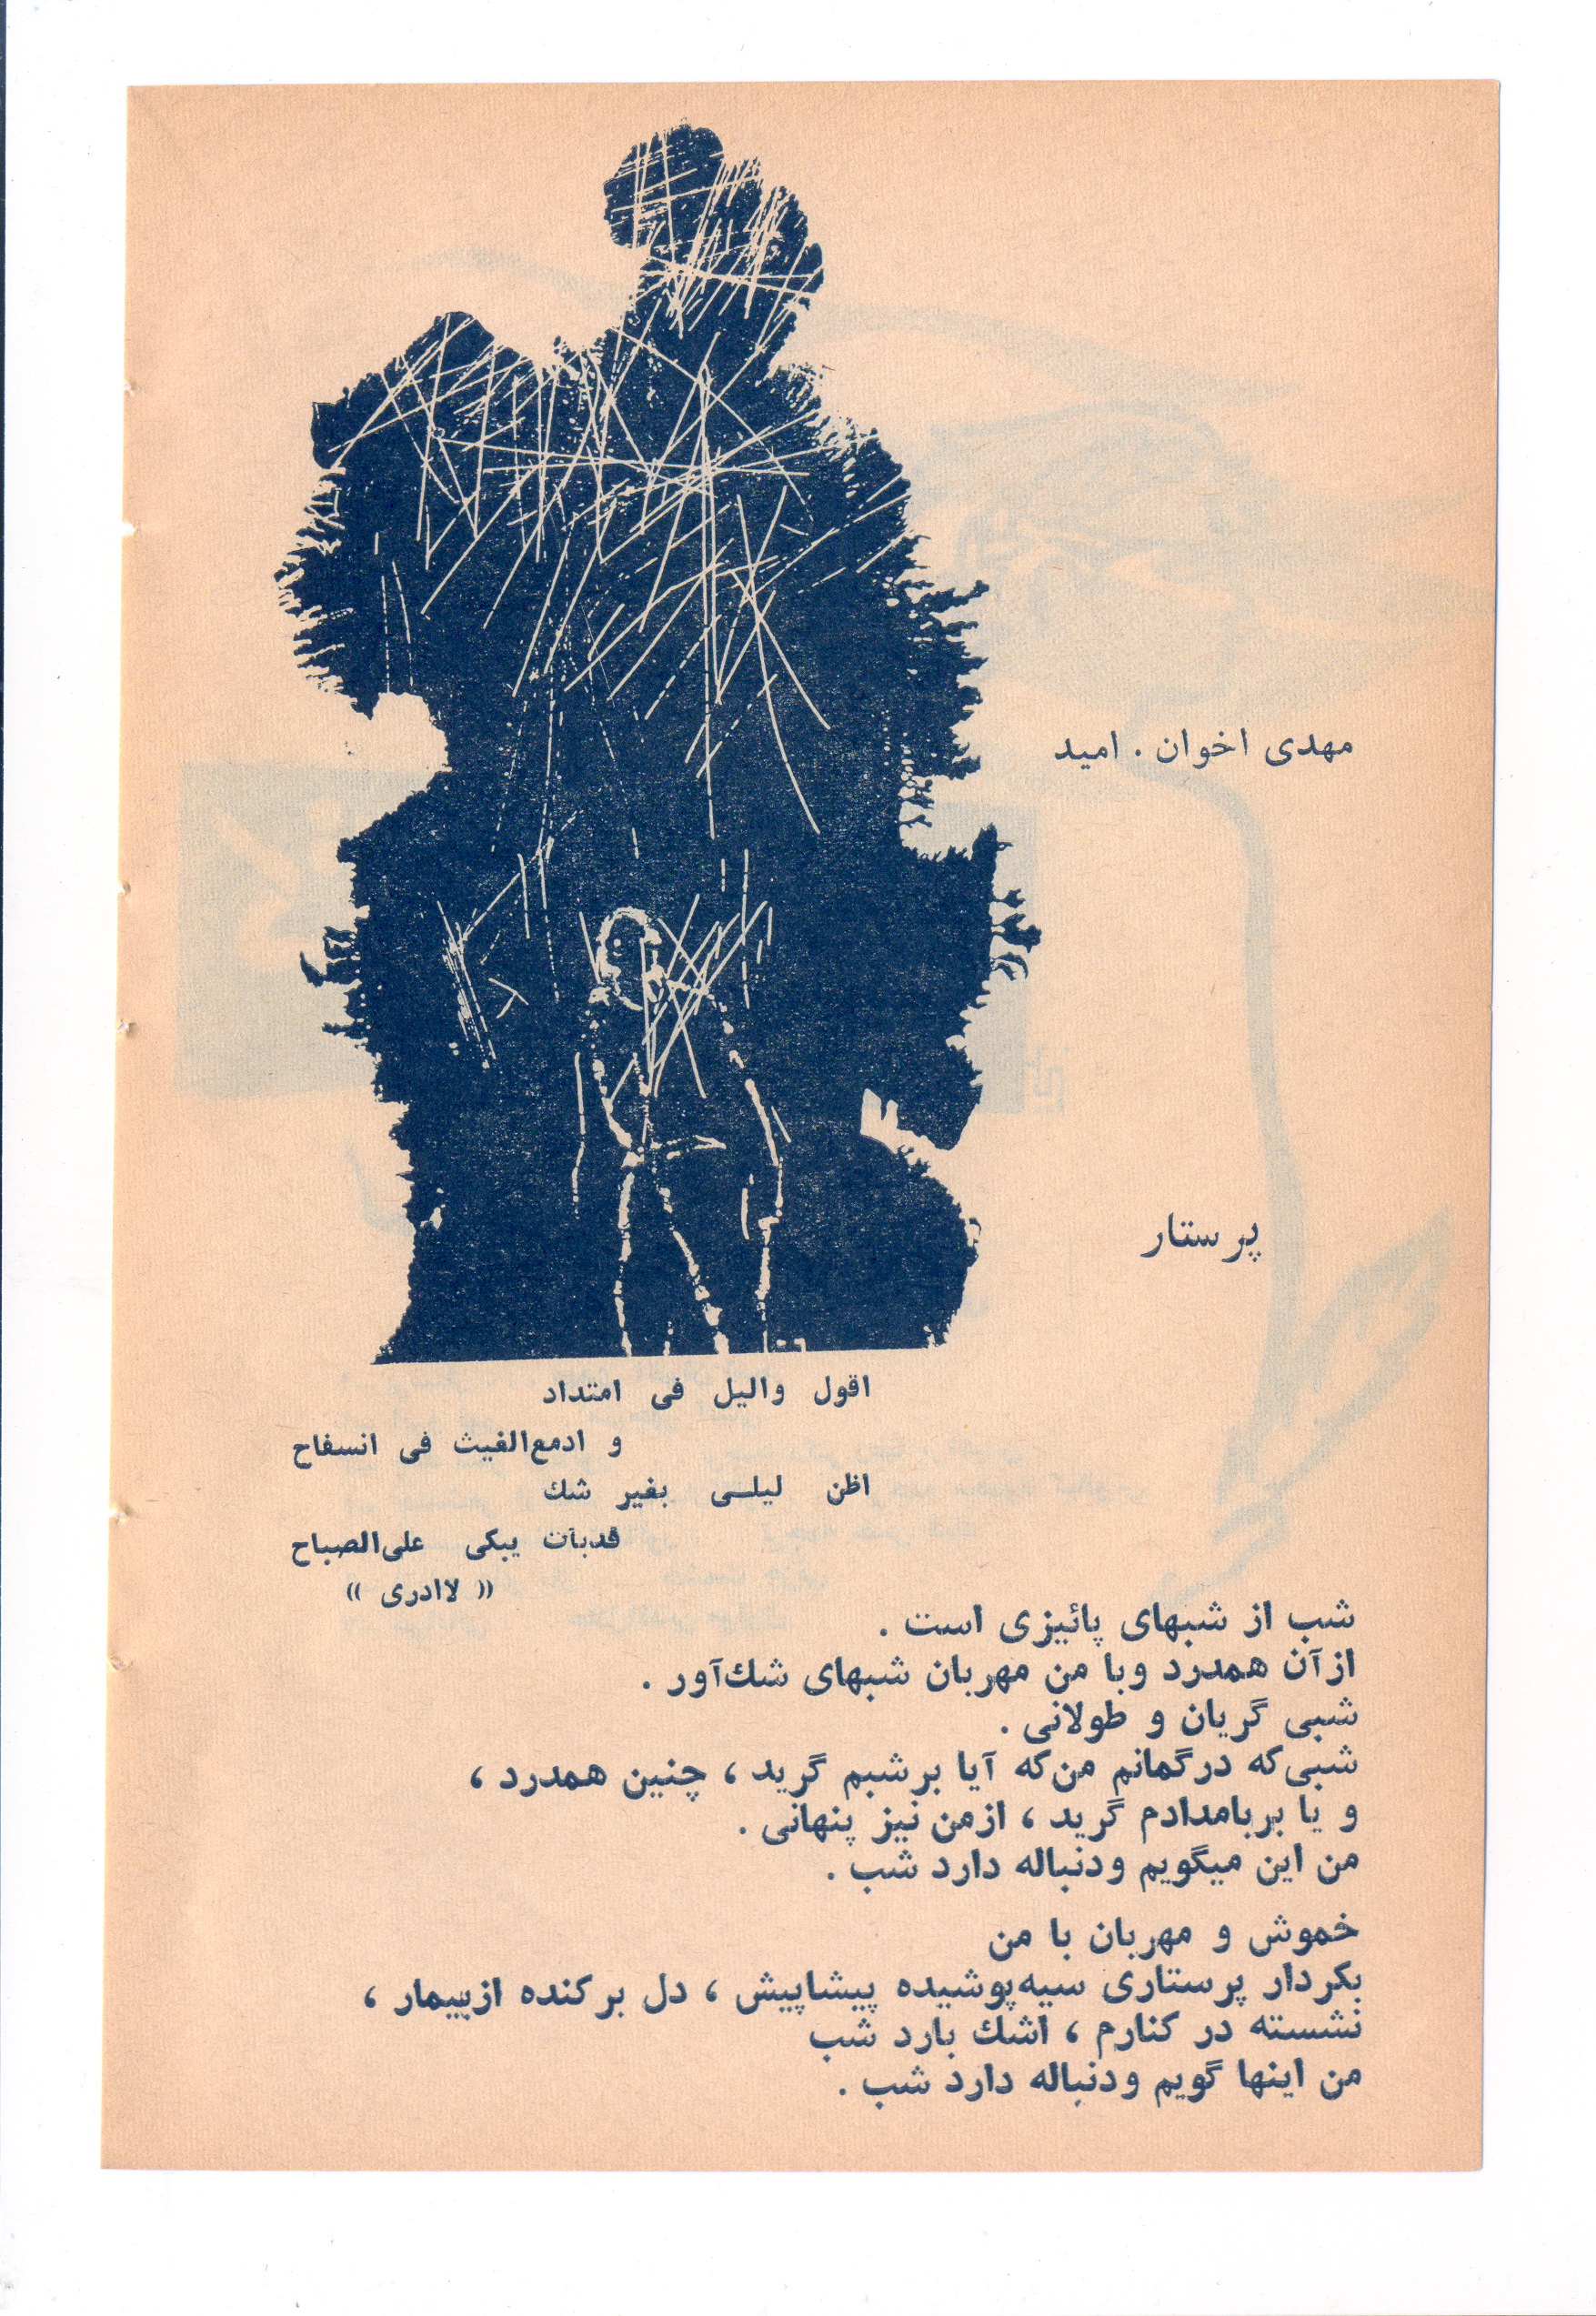 مهدی اخوان . امید
پرستار
اقول والیل فی امتداد
و ادمع‌الغیث فی انسفاح
اظن لیلــی بغیر شك
قدبات یبکی علی‌الصباح
« لاادری »
شب از شبهای پائیزی است .
ازآن همدرد وبا من مهربان شبهای شك‌آور .
شبی گریان و طولانی .
شبی‌که درگمانم من‌که آیا برشبم گرید ، چنین همدرد ،
و یا بربامدادم گرید ، ازمن نیز پنهانی .
من این میگویم ودنباله دارد شب .
خموش و مهربان با من
بکردار پرستاری سیه‌پوشیده پیشاپیش ، دل برکنده ازبیمار ،
نشسته در کنارم ، اشك بارد شب
من اینها گویم ودنباله دارد شب .